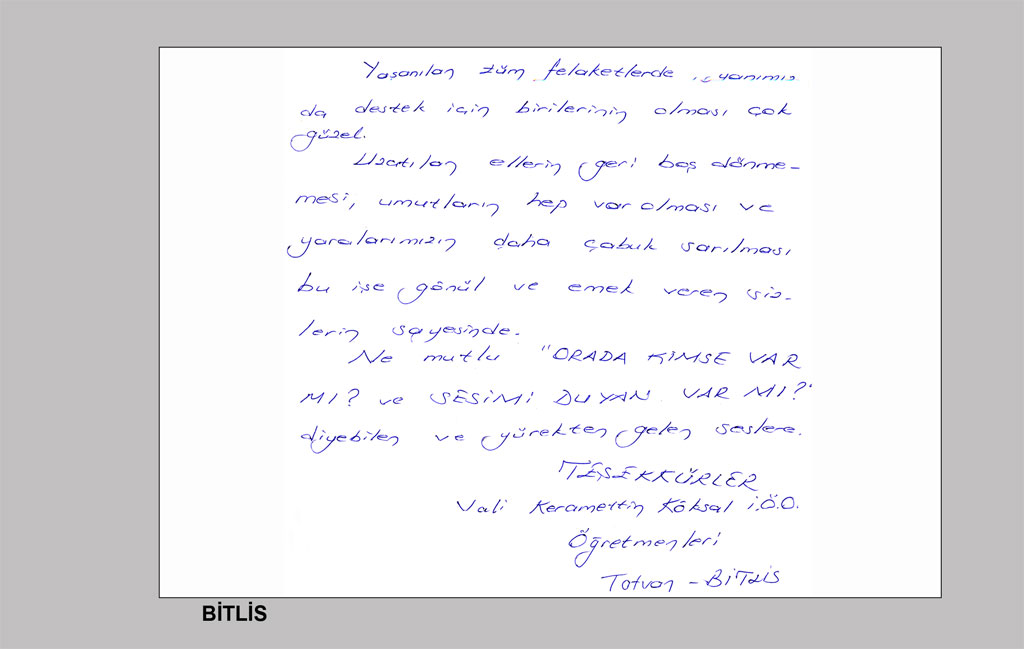 Yaşanılan tüm felaketlerde yanımız
da destek için birilerinin olması çok
güzel.
Uzatılan ellerin geri boş dönme-
mesi, umutların hep var olması ve
yaralarımızın daha çabuk sarılması
bu işe gönül ve emek veren siz-
lerin sayesinde.
Ne mutlu "ORADA KİMSE VAR
MI? ve SESİMİ DUYAN VAR MI?"
diyebilen ve yürekten gelen seslere.
TEŞEKKÜRLER
Vali Keramettin Köksal İ.Ö.O.
Öğretmenleri
Tatvan - BİTLİS
BİTLİS